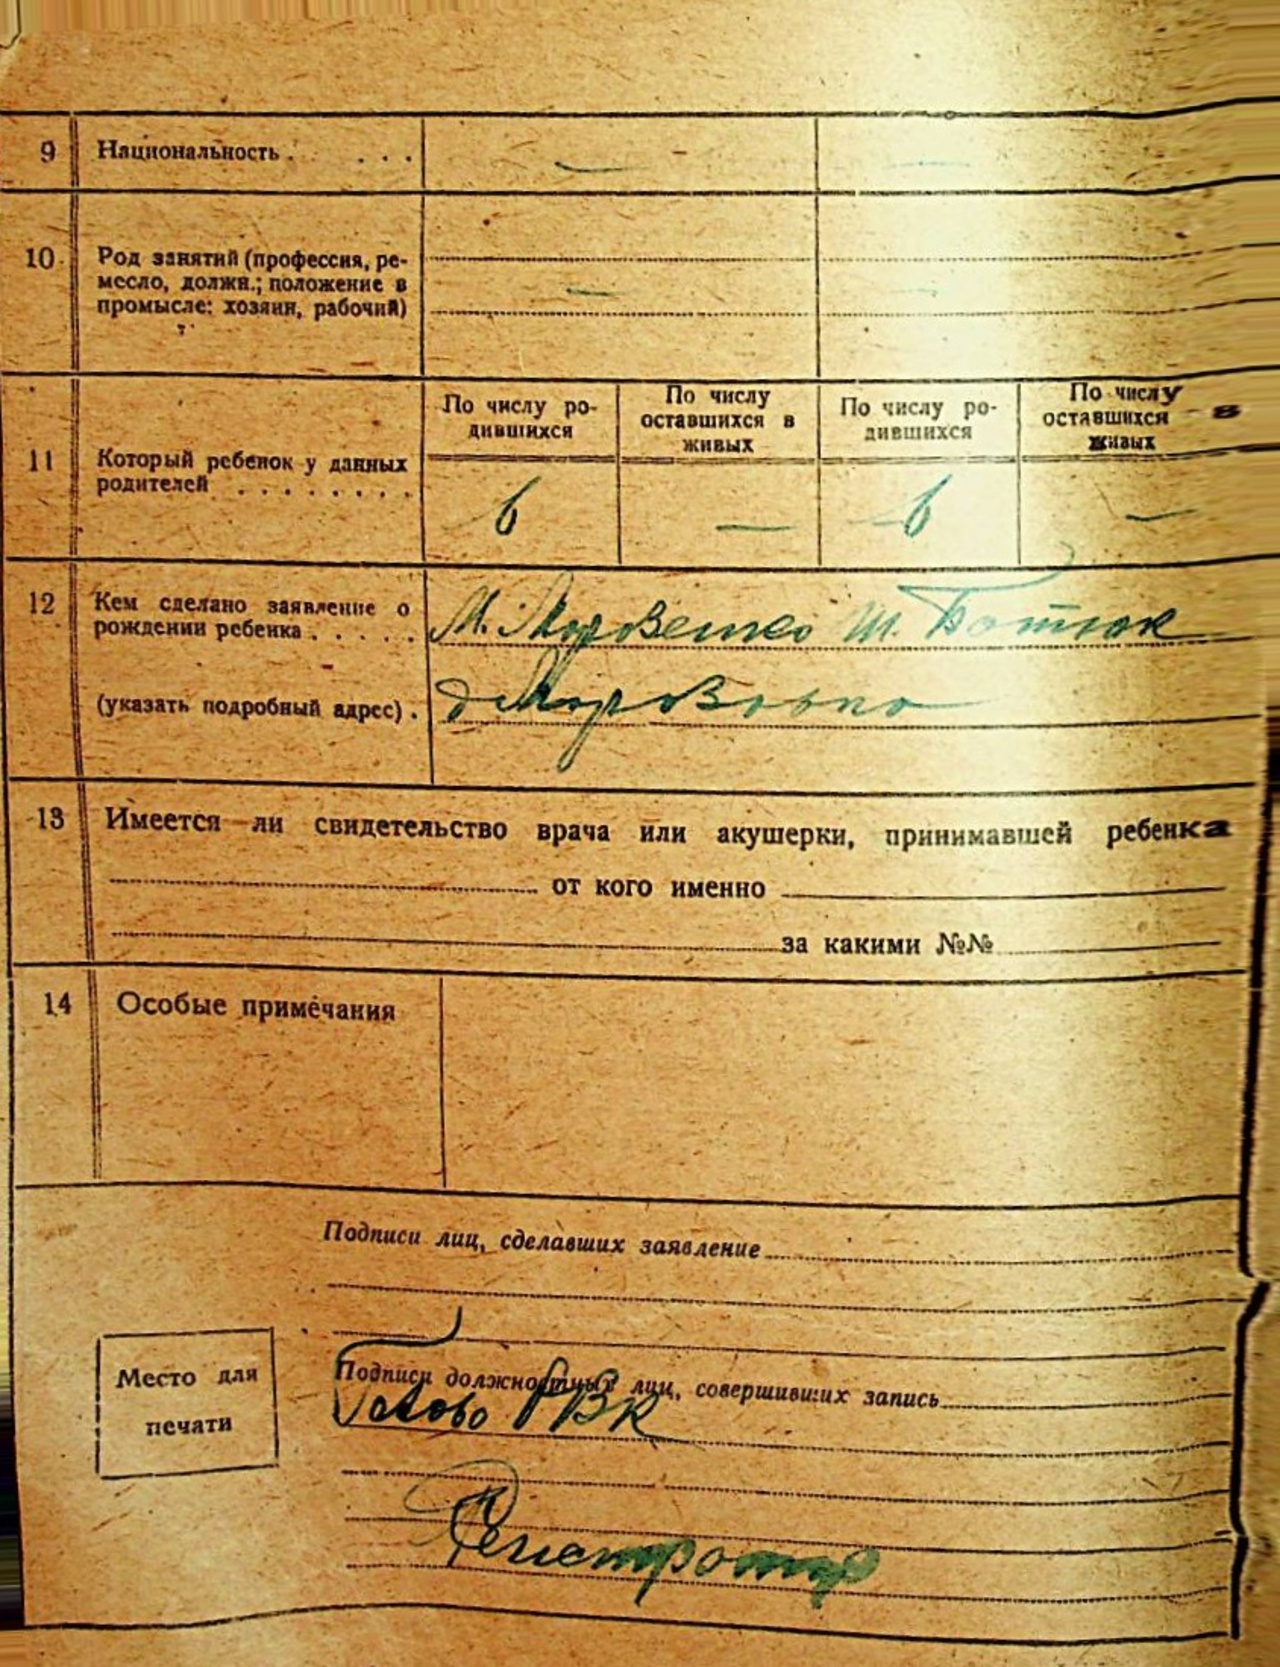 9 Национальность . . . . — —
10 Род занятий (профессия, ре-
месло, должн.; положение в
промысле: хозяин, рабочий) — —
По числу ро-
дившихся
По числу
оставшихся в
живых
По числу ро-
дившихся
По числу
оставшихся в
живых
11 Который ребенок у данных
родителей . . . . . . . . 6 — 6 —
12 Кем сделано заявление о
рождении ребенка . . . . .
(указать подробный адрес) .
13 Имеется ли свидетельство врача или акушерки, принимавшей ребенка
от кого именно
за какими №№
14 Особые примечания
Подписи лиц, сделавших заявление
Место для
печати
Подписи должностных лиц, совершивших запись
РВК
Регистратор